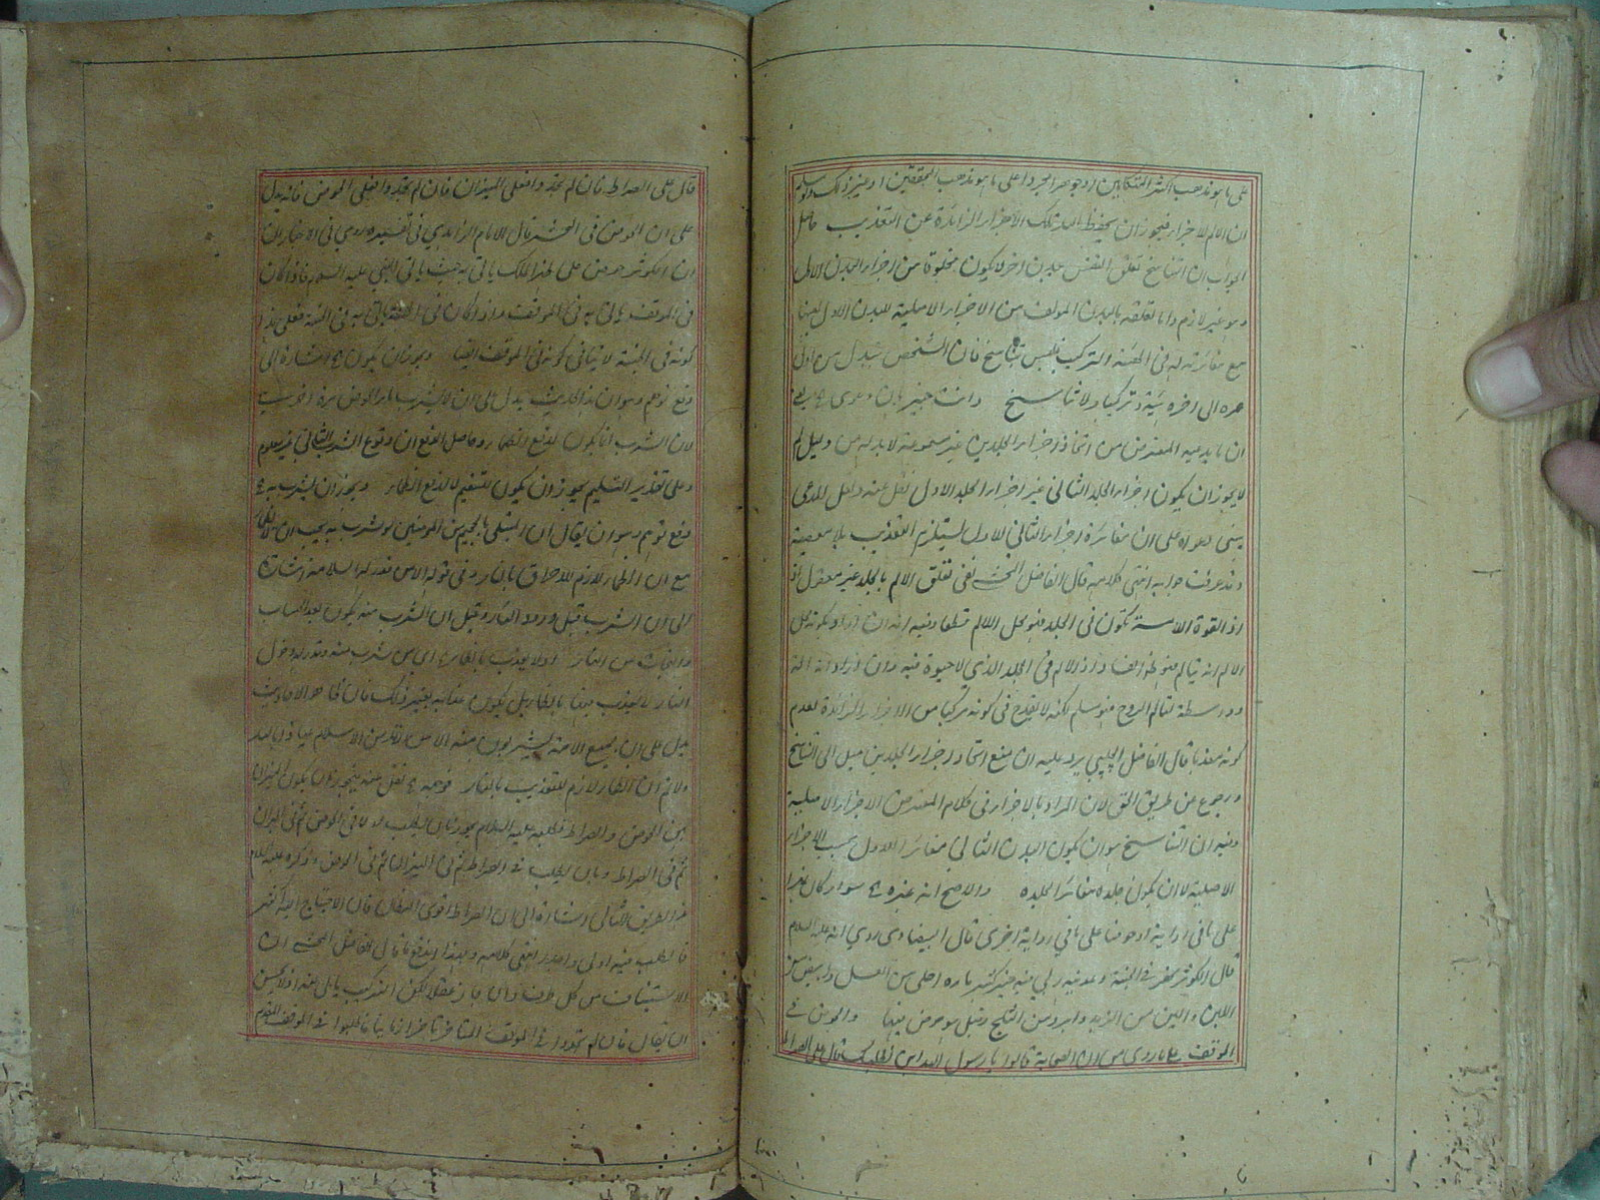 على ما هو مذهب اكثر المتكلمين او جوهرا مجردا على ما هو مذهب المحققين او غير ذلك ولو سلم
ان الالم للاجزاء فيجوز ان يحفظ الله تلك الاجزاء الزائدة عن التعذيب حاصل
الجواب ان التناسخ تعلق النفس ببدن اخر لا يكون مخلوقا من اجزاء البدن الاول
وهو غير لازم وانما تعلقه بالبدن المولف من الاجزاء الاصلية للبدن الاول بعينها
مع مغائرته له في الهيئة والتركيب فليس بتناسخ فان الشخص يتبدل من اول
عمره الى اخره هيئة وتركيبا ولا تناسخ وانت خبير بان دعوى
ان ما يدعيه المعترض من اتحاد اجزاء الجلدين غير مسموعة لا بد له من دليل لم
لا يجوز ان يكون اجزاء الجلد الثاني غير اجزاء الجلد الاول نقل عنه ولعل المدعى
يبنى دعواه على ان مغائرة اجزاء الثاني للاول يستلزم التعذيب بلا معصية
وقد عرفت جوابه انتهى كلامه قال الفاضل المحشي نفى تعلق الالم بالجلد غير معقول اذ
اذ القوة اللامسة تكون في الجلد فهو محل الالم قطعا وفيه انه ان اراد بكونه محل
الالم انه يتالم فهو ظاهر الفساد اذ لا الم في الجلد الذي لا حيوة فيه وان اراد انه الة
وواسطة لتالم الروح فهو مسلم لكنه لا يقدح في كونه مركبا من الاجزاء الزائدة لعدم
كونه معذبا قال الفاضل الچلپي يرد عليه ان منع اتحاد اجزاء الجلدين ميل الى التناسخ
ورجوع عن طريق الحق لان المراد بالاجزاء في كلام المعترض الاجزاء الاصلية
وفيه ان التناسخ هو ان يكون البدن الثاني مغائرا للاول بحسب الاجزاء
الاصلية لا ان يكون جلده مغائرا لجلده والاصح انه غيره سواء كان نهرا
على ما في رواية او حوضا على ما في رواية اخرى قال البيضاوي روي انه عليه السلام
قال الكوثر نهر في الجنة وعدنيه ربي فيه خير كثير ماؤه احلى من العسل وابيض من
اللبن والين من الزبد وابرد من الثلج وقيل هو حوض فيها والحوض في
الموقف على ما روي من ان الصحابة قالوا يا رسول الله اين نطلبك قال على الصراط
قال على الصراط فان لم تجدوا فعلى الميزان فان لم تجدوا فعلى الحوض فانه يدل
على ان الحوض في المحشر قال الامام الزاهدي في تفسيره روي في الاخبار ان
ان الكوثر حوض على ظهر الملك ياتي به حيث ياتي النبي عليه السلام فاذا كان
في الموقف ياتي به في الموقف واذا كان في الجنة ياتي به في الجنة فعلى هذا
كونه في الجنة لا ينافي كونه في الموقف ايضا ويجوز ان يكون اشارة الى
دفع توهم وهو ان هذا الحديث يدل على ان لا يشرب ماء الحوض مرة اخرى
لان الشرب انما يكون لدفع الظماء وحاصل الدفع ان وقوع الشرب الثاني غير معلوم
وعلى تقدير التسليم يجوز ان يكون للتنعيم لا لدفع الظماء ويجوز ان يشرب به
دفع توهم وهو ان يقال ان المبتلى بالجحيم من المومنين لو شرب به يجب ان لا يظمأ
مع ان الظماء لازم للاحراق بالنار وفي قوله
الى ان الشرب قبل ورود النار وقيل ان الشرب منه يكون بعد الحساب
والنجاة من النار او لا يعذب بالظماء اي من شرب منه وقدر له دخول
النار لا يعذب فيها بالظماء بل يكون عذابه بغير ذلك فان ظاهر الاحاديث
يدل على ان جميع الامة يشربون منه الا من ارتد من الاسلام عياذا بالله
ولا نم ان الظماء لازم للتعذيب بالنار نقل عنه فيجوز ان يكون الميزان
بين الحوض والصراط فطلبه عليه السلام يجوز بان يطلب اولا في الحوض ثم في الميزان
ثم في الصراط وبان يطلب في الصراط ثم في الميزان ثم في الحوض وذكره عليه السلام
الطريق الثاني اشارة الى ان الصراط اقوى فان الاحتياج اليه اكثر
فالطلب فيه اولى واجدر انتهى كلامه وبهذا اندفع ما قال الفاضل المحشي ان
الاستيناف من كل طرف وان جاز عقلا لكن التركيب يابى عنه اذ لا يحسن
ان يقال فان لم تجدوا في الموقف المتاخر فاطلبوا في الموقف المتقدم